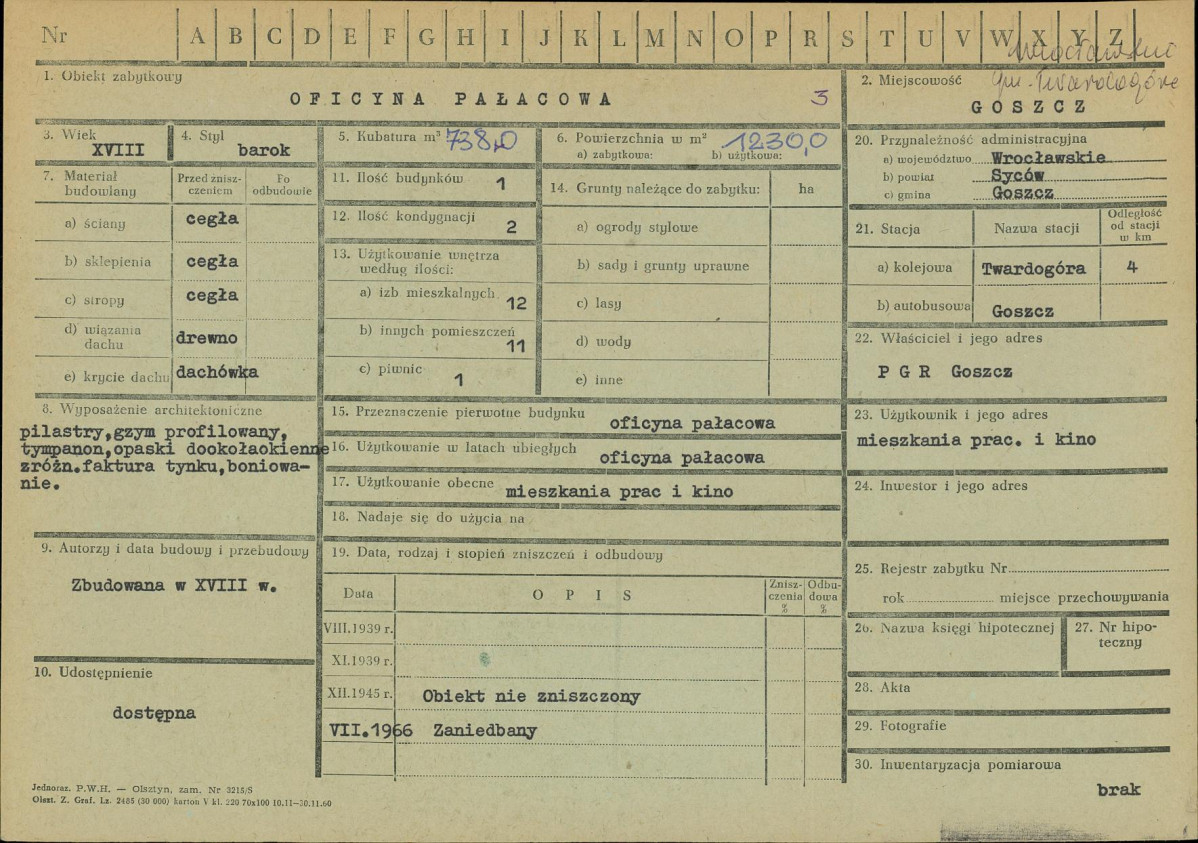 Nr A B C D E F G H I J K L M N O P R S T U V W X Y Z
1. Obiekt zabytkowy
OFICYNA PAŁACOWA 3
2. Miejscowość
gm. Twardogóra
GOSZCZ
3. Wiek
XVIII
4. Styl
barok
5. Kubatura m³ 738,0
6. Powierzchnia w m² 1230,0
a) zabytkowa: b) użytkowa:
7. Materiał budowlany
Przed znisz-
czeniem
Po
odbudowie
a) ściany cegła
b) sklepienia cegła
c) stropy cegła
d) wiązania
dachu drewno
e) krycie dachu dachówka
8. Wyposażenie architektoniczne
pilastry,gzym profilowany,
tympanon,opaski dookołaokienne
zróżn.faktura tynku,boniowa-
nie.
9. Autorzy i data budowy i przebudowy
Zbudowana w XVIII w.
10. Udostępnienie
dostępna
11. Ilość budynków 1
12. Ilość kondygnacji
2
13. Użytkowanie wnętrza
według ilości:
a) izb mieszkalnych 12
b) innych pomieszczeń
11
c) piwnic 1
14. Grunty należące do zabytku: ha
a) ogrody stylowe
b) sady i grunty uprawne
c) lasy
d) wody
e) inne
15. Przeznaczenie pierwotne budynku
oficyna pałacowa
16. Użytkowanie w latach ubiegłych
oficyna pałacowa
17. Użytkowanie obecne mieszkania prac i kino
18. Nadaje się do użycia na
19. Data, rodzaj i stopień zniszczeń i odbudowy
Data OPIS
Znisz-
czenia
%
Odbu-
dowa
%
VIII.1939 r.
XI.1939 r.
XII.1945 r. Obiekt nie zniszczony
VII.1966 Zaniedbany
20. Przynależność administracyjna
a) województwo Wrocławskie
b) powiat Syców
c) gmina Goszcz
21. Stacja Nazwa stacji
Odległość
od stacji
w km
a) kolejowa Twardogóra 4
b) autobusowa Goszcz
22. Właściciel i jego adres
P G R Goszcz
23. Użytkownik i jego adres
mieszkania prac. i kino
24. Inwestor i jego adres
25. Rejestr zabytku Nr
rok miejsce przechowywania
26. Nazwa księgi hipotecznej
27. Nr hipo-
teczny
28. Akta
29. Fotografie
30. Inwentaryzacja pomiarowa
brak
Jednoraz. P.W.H. — Olsztyn, zam. Nr 3215/S
Olszt. Z. Graf. Lz. 2485 (30 000) karton V kl. 220 70x100 10.11—30.11.60